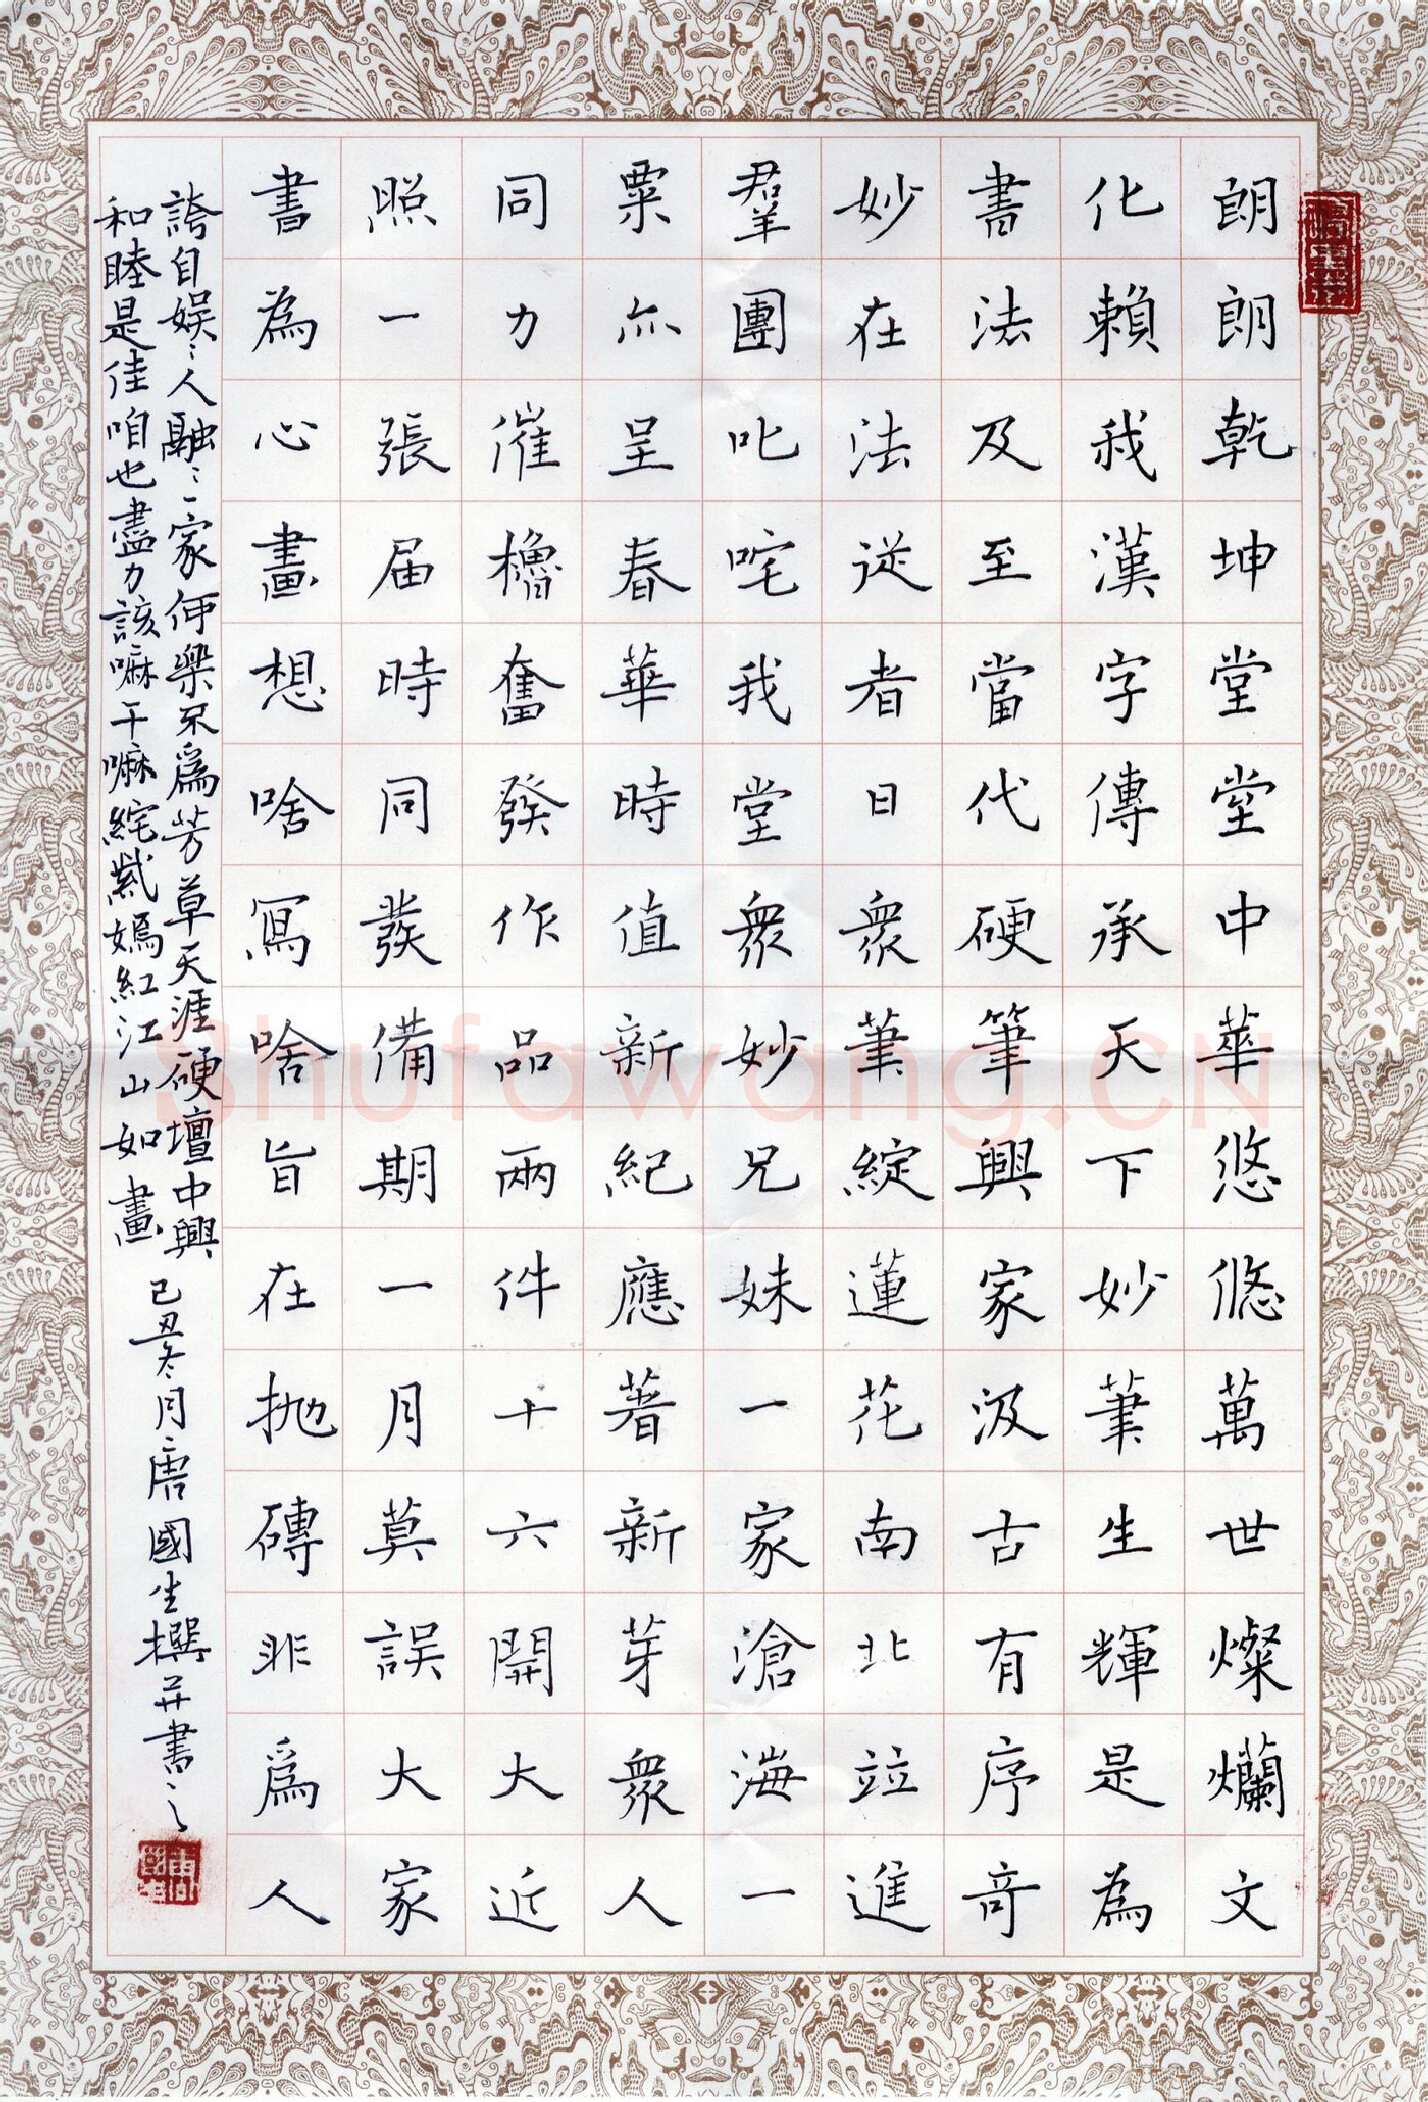 朗朗乾坤堂堂中華悠悠萬世燦爛文
化賴我漢字傳承天下妙筆生輝是為
書法及至當代硬筆興家汲古有序奇
妙在法從者日眾筆綻蓮花南北竝進
羣團叱咤我堂眾妙兄妹一家滄海一
粟亦呈春華時值新紀應著新芽眾人
同力催櫓奮發作品兩件十六開大近
照一張届時同發備期一月莫誤大家
書為心畫想啥寫啥旨在抛磚非爲人
誇自娛〻人融〻一家何樂不爲芳草天涯硬壇中興
和睦是佳咱也盡力該嘛干嘛紫嫣紅江山如畫
己丑冬月唐國生撰并書之
Shufawang.CN